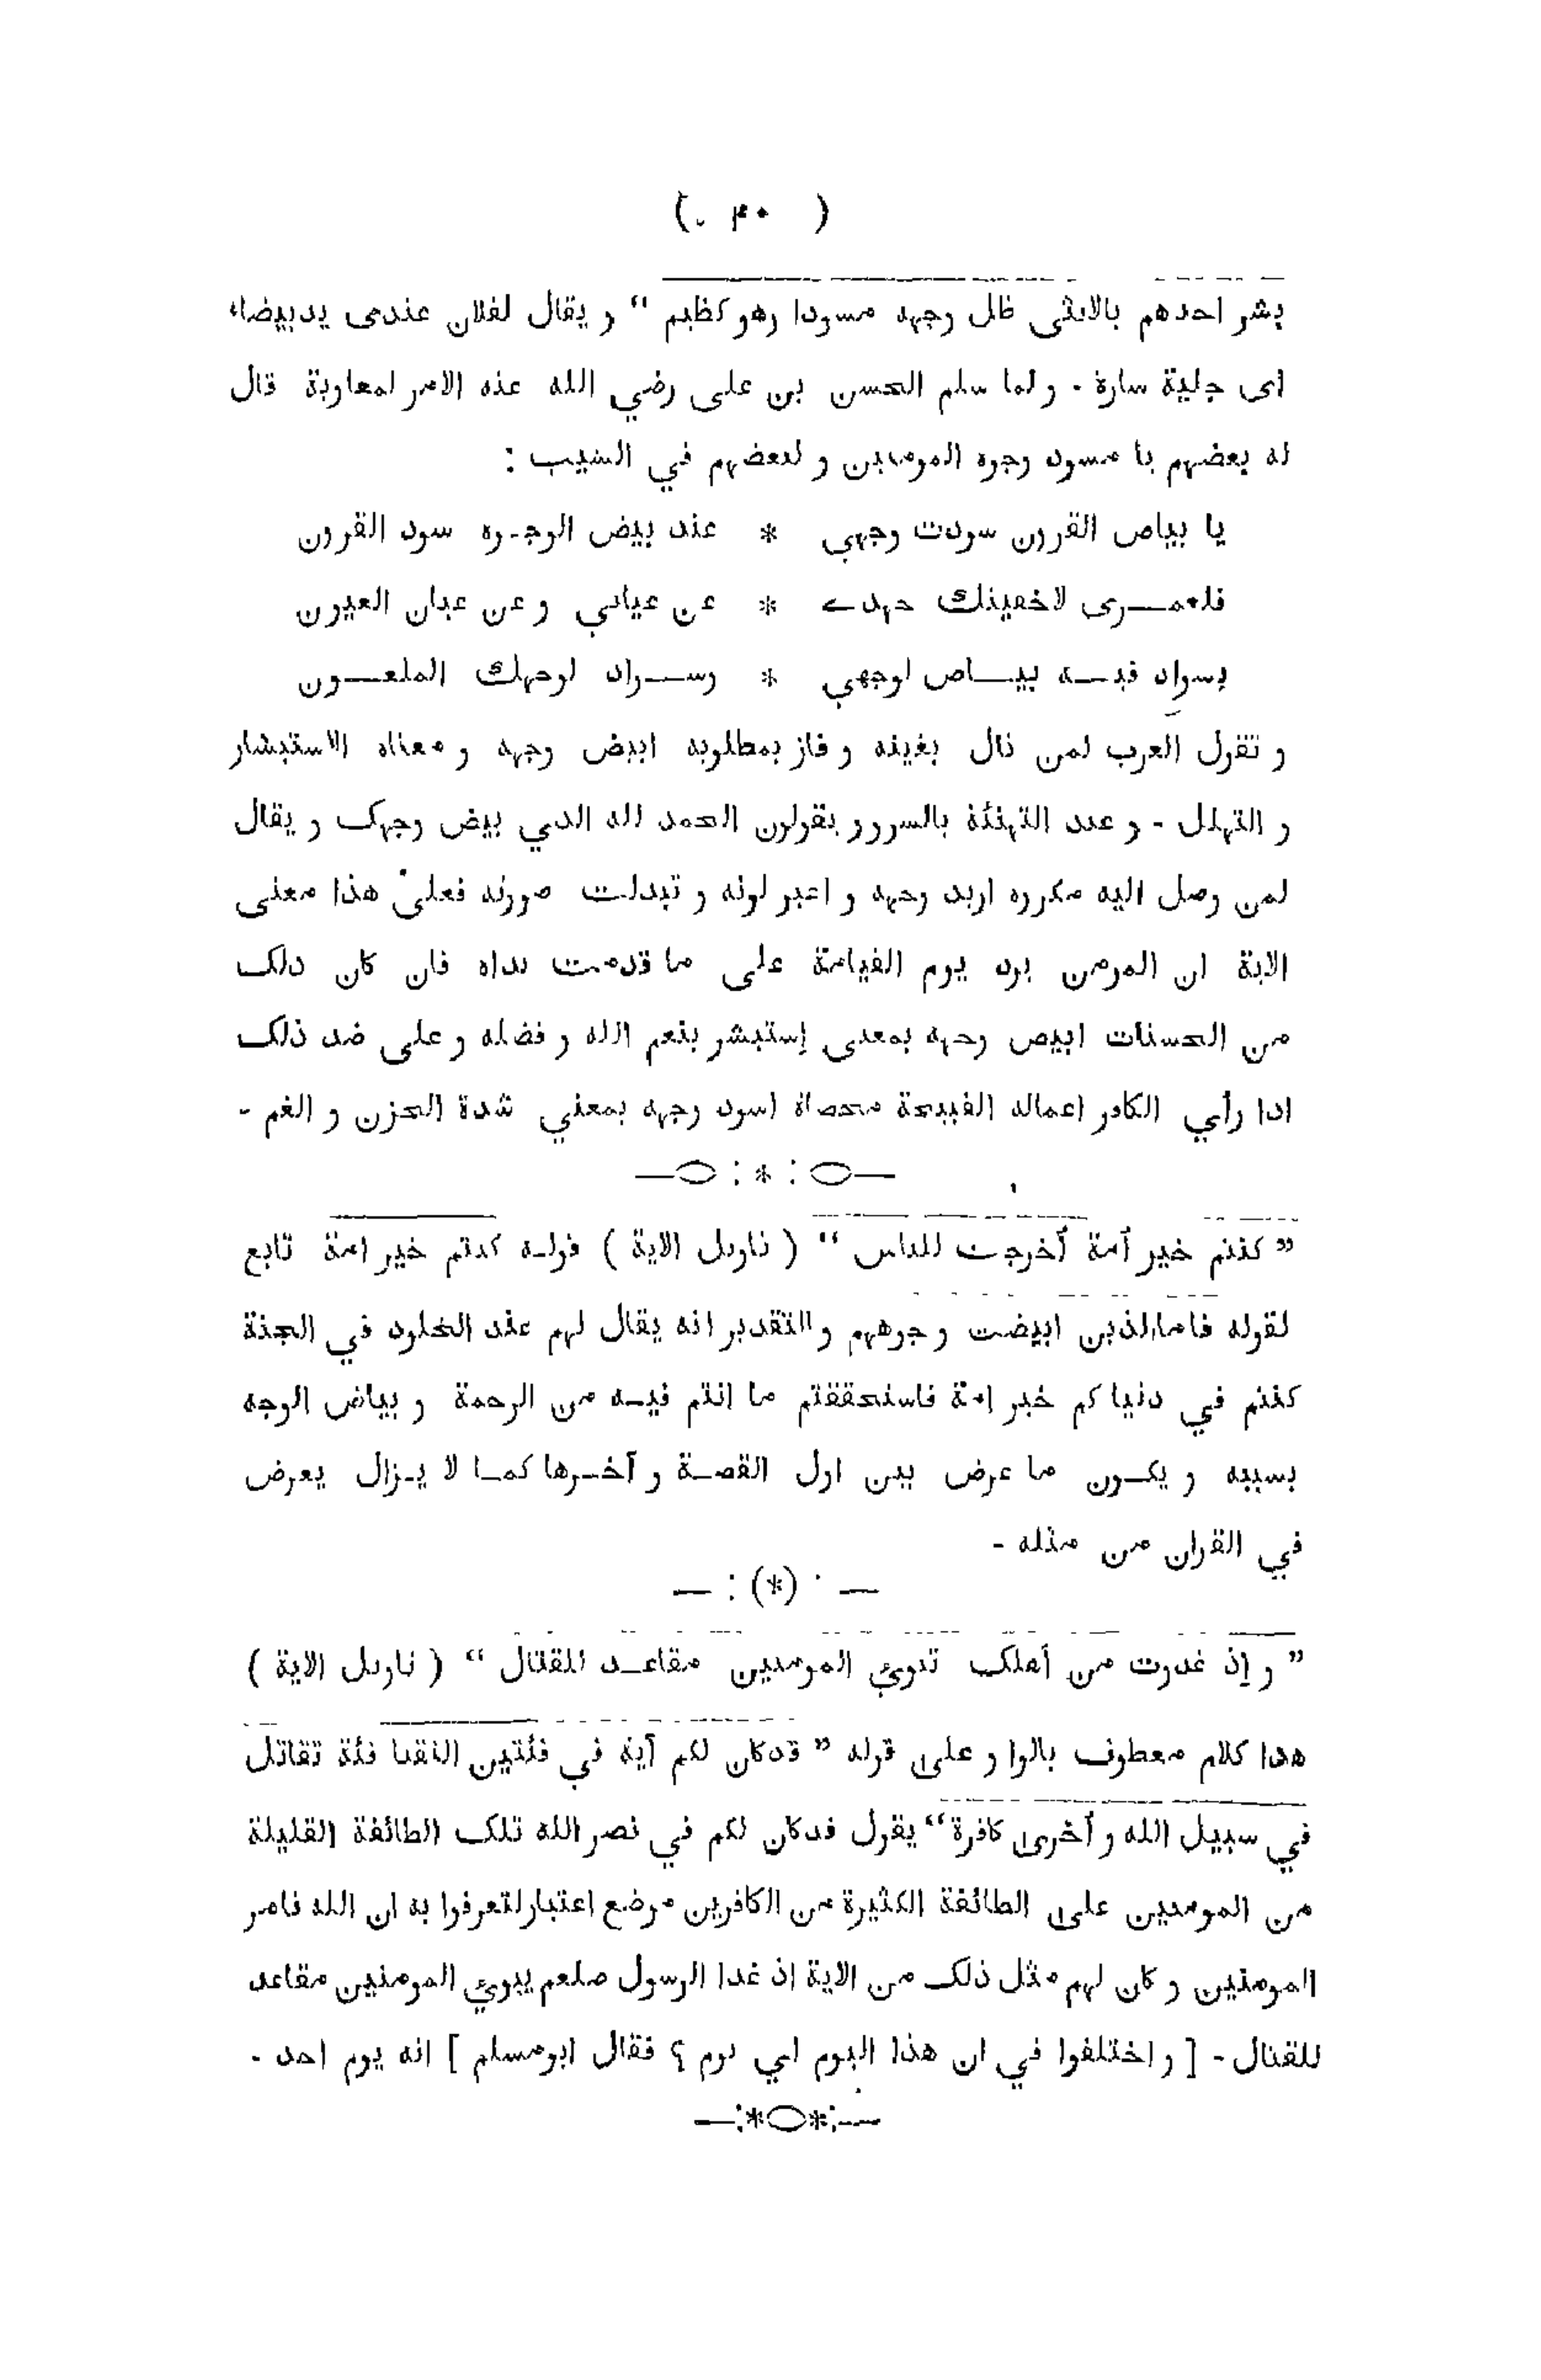 ( ٣٠ )
بشر احدهم بالانثى ظل وجهه مسودا وهو كظيم “ و يقال لفلان عندى يد بيضاء
اى جلية سارة - و لما سلم الحسن بن على رضي الله عنه الامر لمعاوية قال
له بعضهم يا مسود وجوه المومنين و لبعضهم في الشيب :
يا بياض القرون سودت وجهي * عند بيض الوجوه سود القرون
فلعمرى لاخفينك جهدے * عن عياني و عن عيان العيون
بسواد فيه بياض لوجهي * وسواد لوجهك الملعون
و تقول العرب لمن نال بغيته و فاز بمطلوبه ابيض وجهه و معناه الاستبشار
و التهلل - و عند التهنئة بالسرور يقولون الحمد لله الذي بيض وجهك و يقال
لمن وصل اليه مكروه اربد وجهه و اغبر لونه و تبدلت صورته فعلى هذا معنى
الاية ان المومن يرد يوم القيامة على ما قدمت يداه فان كان ذلك
من الحسنات ابيض وجهه بمعنى إستبشر بنعم الله و فضله و على ضد ذلك
اذا رأي الكافر اعماله القبيحة محصاة اسود وجهه بمعني شدة الحزن و الغم -
—○ : * : ○—
” كنتم خير أمة أخرجت للناس “ ( تاويل الاية ) قوله كنتم خير امة تابع
لقوله فاما الذين ابيضت وجوههم و التقدير انه يقال لهم عند الخلود في الجنة
كنتم في دنياكم خير امة فاستحققتم ما انتم فيه من الرحمة و بياض الوجه
بسببه و يكون ما عرض بين اول القصة و آخرها كما لا يزال يعرض
في القران من مثله -
— : (*) : —
” و إذ غدوت من أهلك تبوئ المومنين مقاعد للقتال “ ( تاويل الاية )
هذا كلام معطوف بالوا و على قوله ” قد كان لكم آية في فئتين التقتا فئة تقاتل
في سبيل الله و أخرى كافرة “ يقول قد كان لكم في نصر الله تلك الطائفة القليلة
من المومنين على الطائفة الكثيرة من الكافرين موضع اعتبار لتعرفوا به ان الله ناصر
المومنين و كان لهم مثل ذلك من الاية اذ غدا الرسول صلعم يبوئ المومنين مقاعد
للقتال - [ و اختلفوا في ان هذا اليوم اي يوم ؟ فقال ابو مسلم ] انه يوم احد -
—:*○*:—